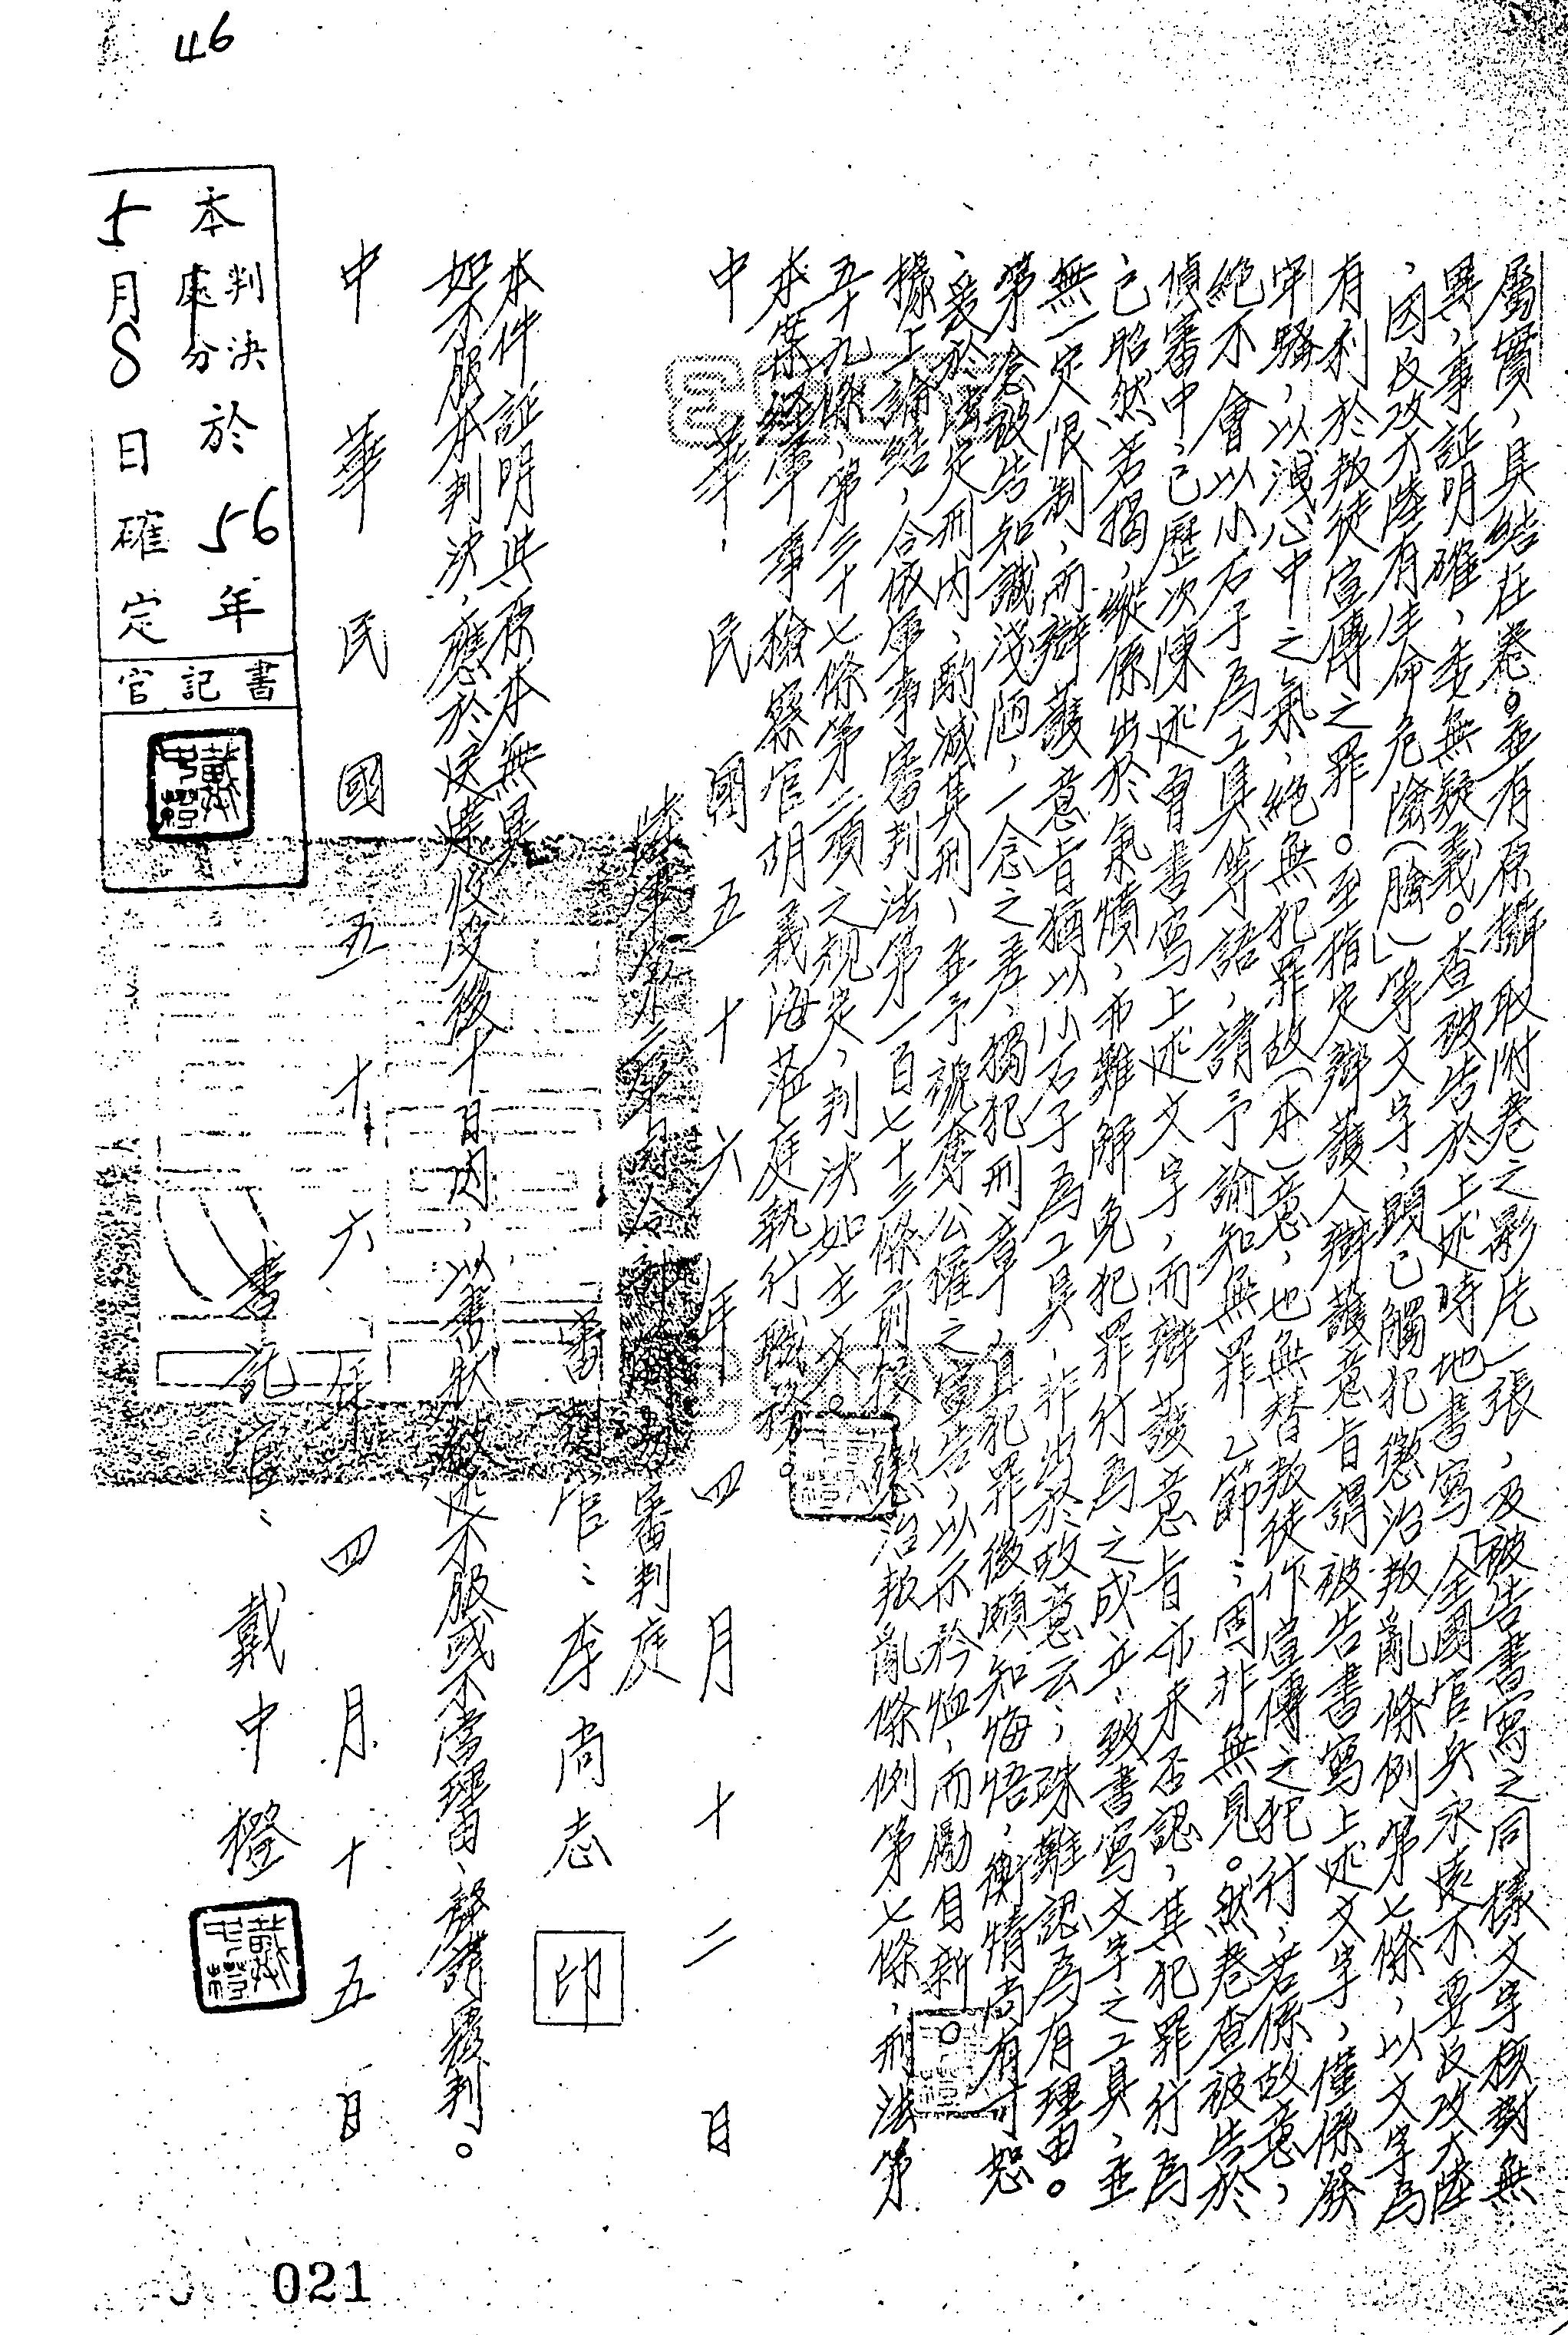 屬實，具結在卷。並有原攝取附卷之影片一張，及被告書寫之同樣文字核對無
異，事証明確，委無疑義。查被告於上述時地書寫「全國官兵永遠不要反攻大陸
，因反攻大陸有生命危險（臉）」等文字，顯已觸犯懲治叛亂條例第七條，以文字為
有利於叛徒宣傳之罪。至指定辯護人辯護意旨謂被告書寫上述文字，僅係發
牢騷，以洩心中之氣，絕無犯罪故（本）意，也無替叛徒作宣傳之犯行，若係故意，
絕不會以小石子為工具等語，請予諭知無罪乙節；固非無見。然卷查被告於
偵審中，已歷次陳述曾書寫上述文字，而辯護意旨亦未否認，其犯罪行為
，已昭然若揭，縱係出於氣憤，亦難解免犯罪行為之成立，致書寫文字之工具，並
無一定限制，而辯護意旨猶以小石子為工具，非出於故意云；殊難認為有理由。
第念被告知識淺陋，一念之差，獨犯刑章，且犯罪後頗知悔悟，衡情尚有可恕
，爰於法定刑內，酌減其刑，並予褫奪公權之宣告，以示矜恤，而勵自新。
據上論結，合依軍事審判法第一百七十三條前段，懲治叛亂條例第七條，刑法第
五十九條、第三十七條第二項之規定，判決如主文。
本案經軍事檢察官胡義海蒞庭執行職務。
中華民國五十六年四月十二日
審判庭
審判官：李尚志 印
本件証明與原本無異
如不服本判決，應於送達收受後十日內，以書狀敘述不服或不當理由，聲請覆判。
中華民國五十六年四月十五日
書記官：戴中橙
本判決處分於56年
5月8日確定
書記官
46
021